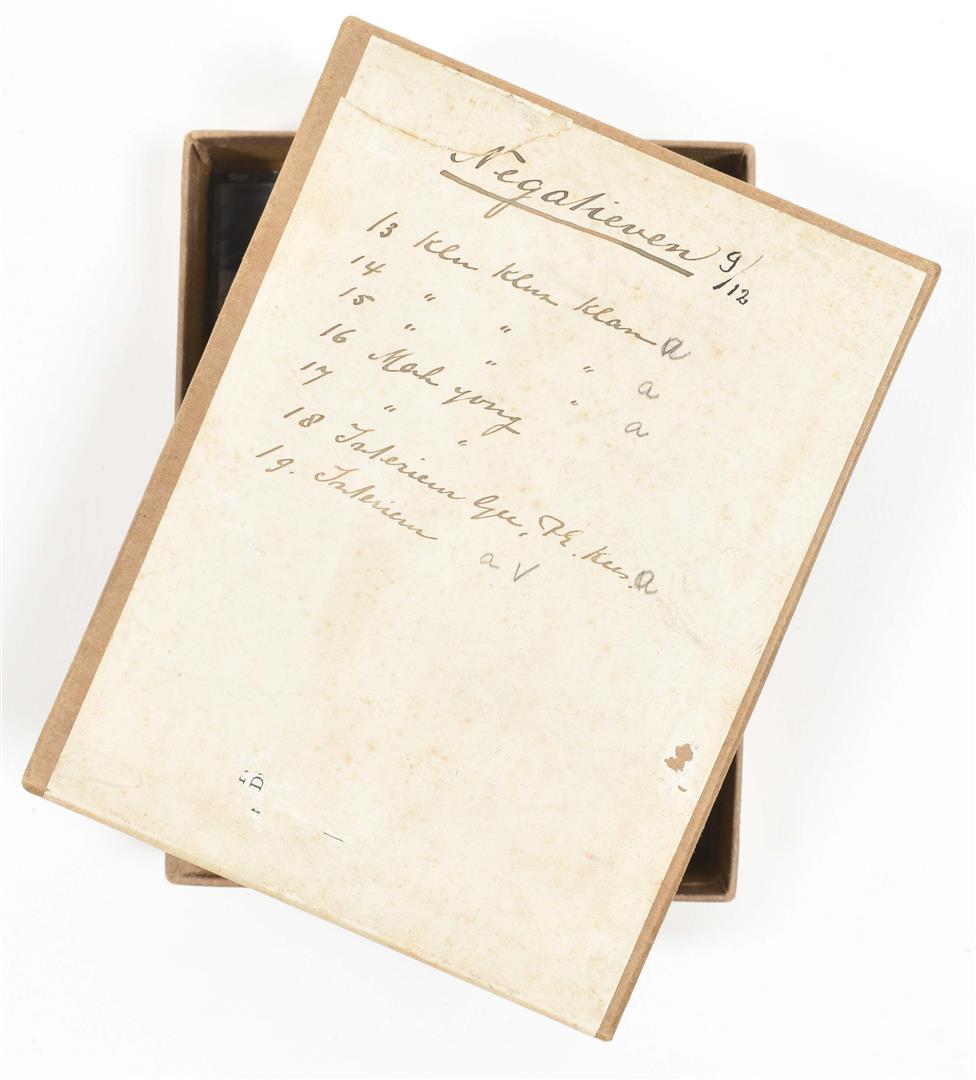 Negatieven 9/12
13 Klen Klen Klan a
14 " " " a
15 " " " a
16 Mak yong
17 " "
18 Interieur Th. a
19. Interieur a V